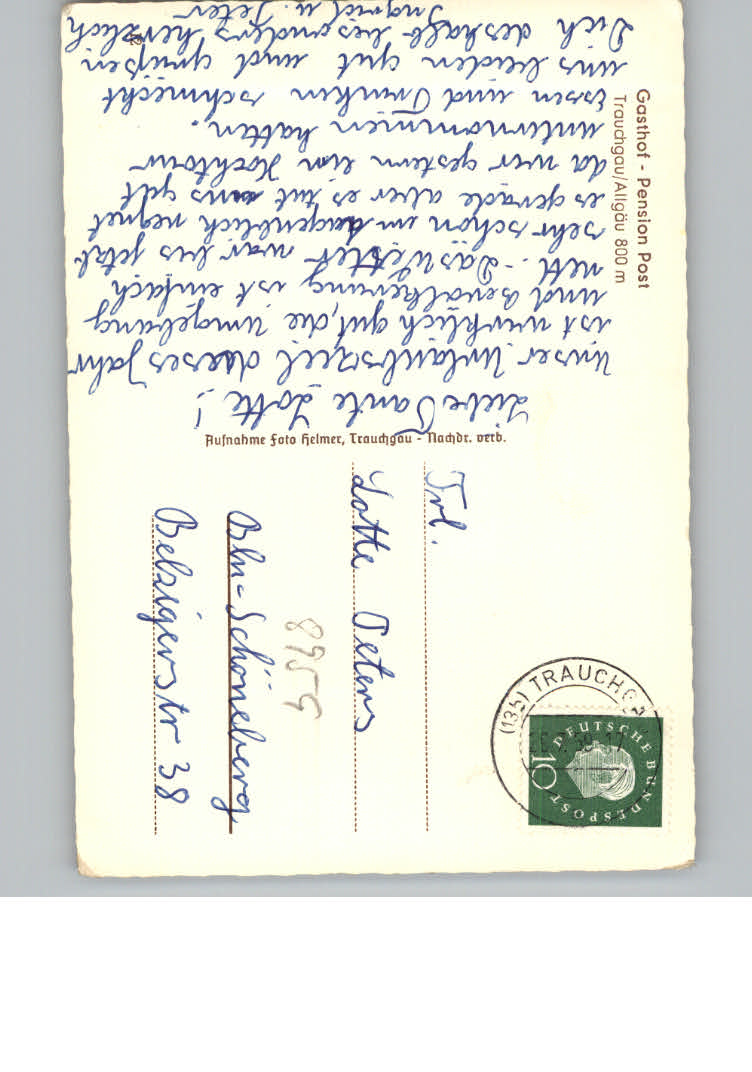 Gasthof - Pension Post
Trauchgau/Allgäu 800 m
Liebe Tante Lotte!
Unser Urlaubsziel dieses Jahr
ist wirklich gut, die Umgebung
und Bevölkerung ist einfach
nett. - Das Wetter war bis jetzt
sehr schön im Augenblick regnet
es gerade aber es tut uns gut
da wir gestern ein Hochtour
unternommen hatten.
Essen und Trinken schmeckt
uns beiden gut und grüßen
Dich deshalb besonders herzlich
Ingrid u. Peter
Aufnahme Foto Helmer, Trauchgau - Nachdr. verb.
Frl.
Lotte Peters
Bln-Schöneberg
Belzigerstr 38
8959
(13b) TRAUCHG
DEUTSCHE BUNDESPOST
10